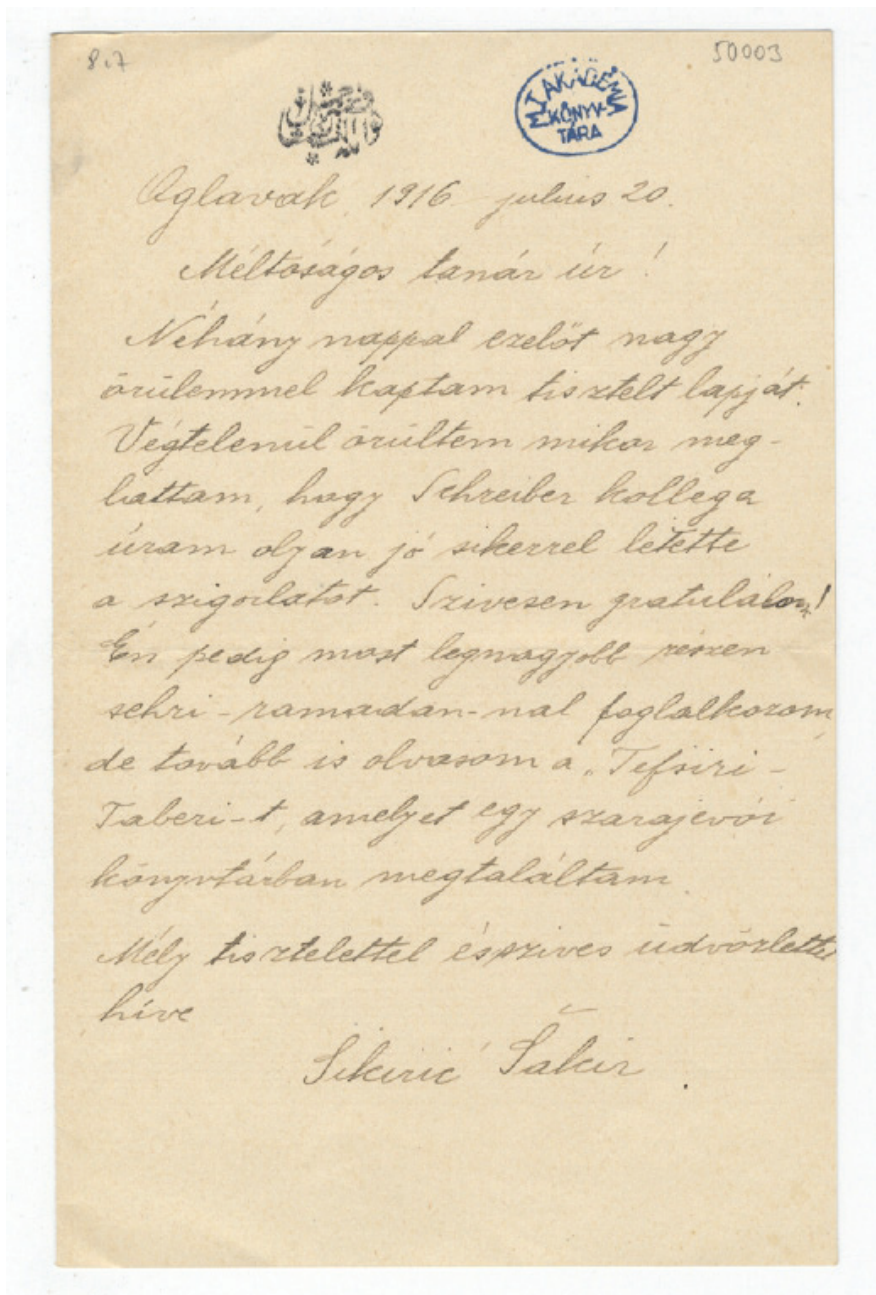 8.7
50003
M. T. AKADÉMIA
KÖNYV-
TÁRA
Oglavak, 1916. julius 20.
Méltóságos tanár úr!
Néhány nappal ezelőt nagy
örülemmel kaptam tisztelt lapját.
Végtelenül örültem mikor meg-
láttam, hogy Schreiber kollega
úram olyan jó sikerrel letette
a szigorlatot. Szivesen gratulálom!
Én pedig most legnagyobb részen
sehri-ramadan-nal foglalkozom,
de tovább is olvasom a „Tefsiri-
Taberi-t, amelyet egy szarajevói
könyvtárban megtaláltam.
Mély tisztelettel és szives üdvözlettel
híve
Sikirić Šakir